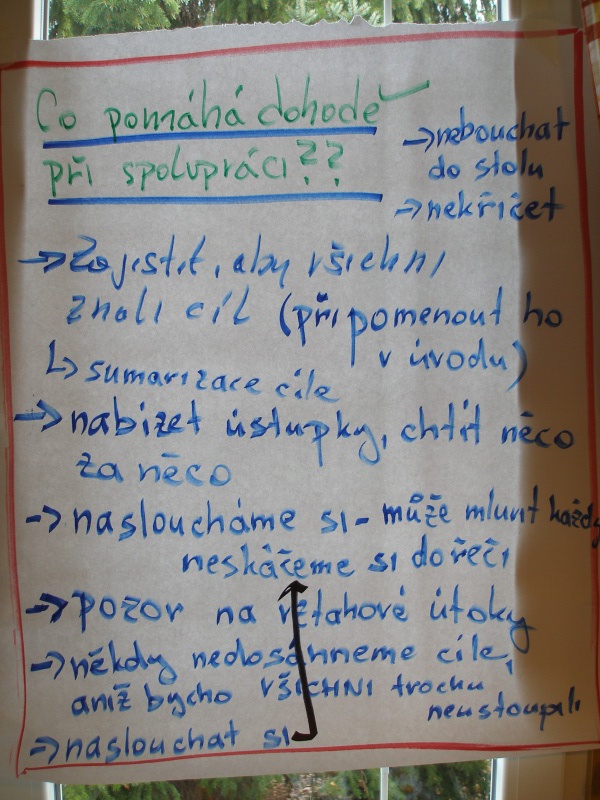 Co pomáhá dohodě
při spolupráci??
→nebouchat
do stolu
→nekřičet
→Zajistit, aby všichni
znali cíl (připomenout ho
v úvodu)
↳ sumarizace cíle
→ nabízet ústupky, chtít něco
za něco
→ nasloucháme si - může mluvit každý
neskáčeme si do řeči
→ pozor na vztahové útoky
→ někdy nedosáhneme cíle,
aniž bycho všichni trochu
neustoupili
→ naslouchat si